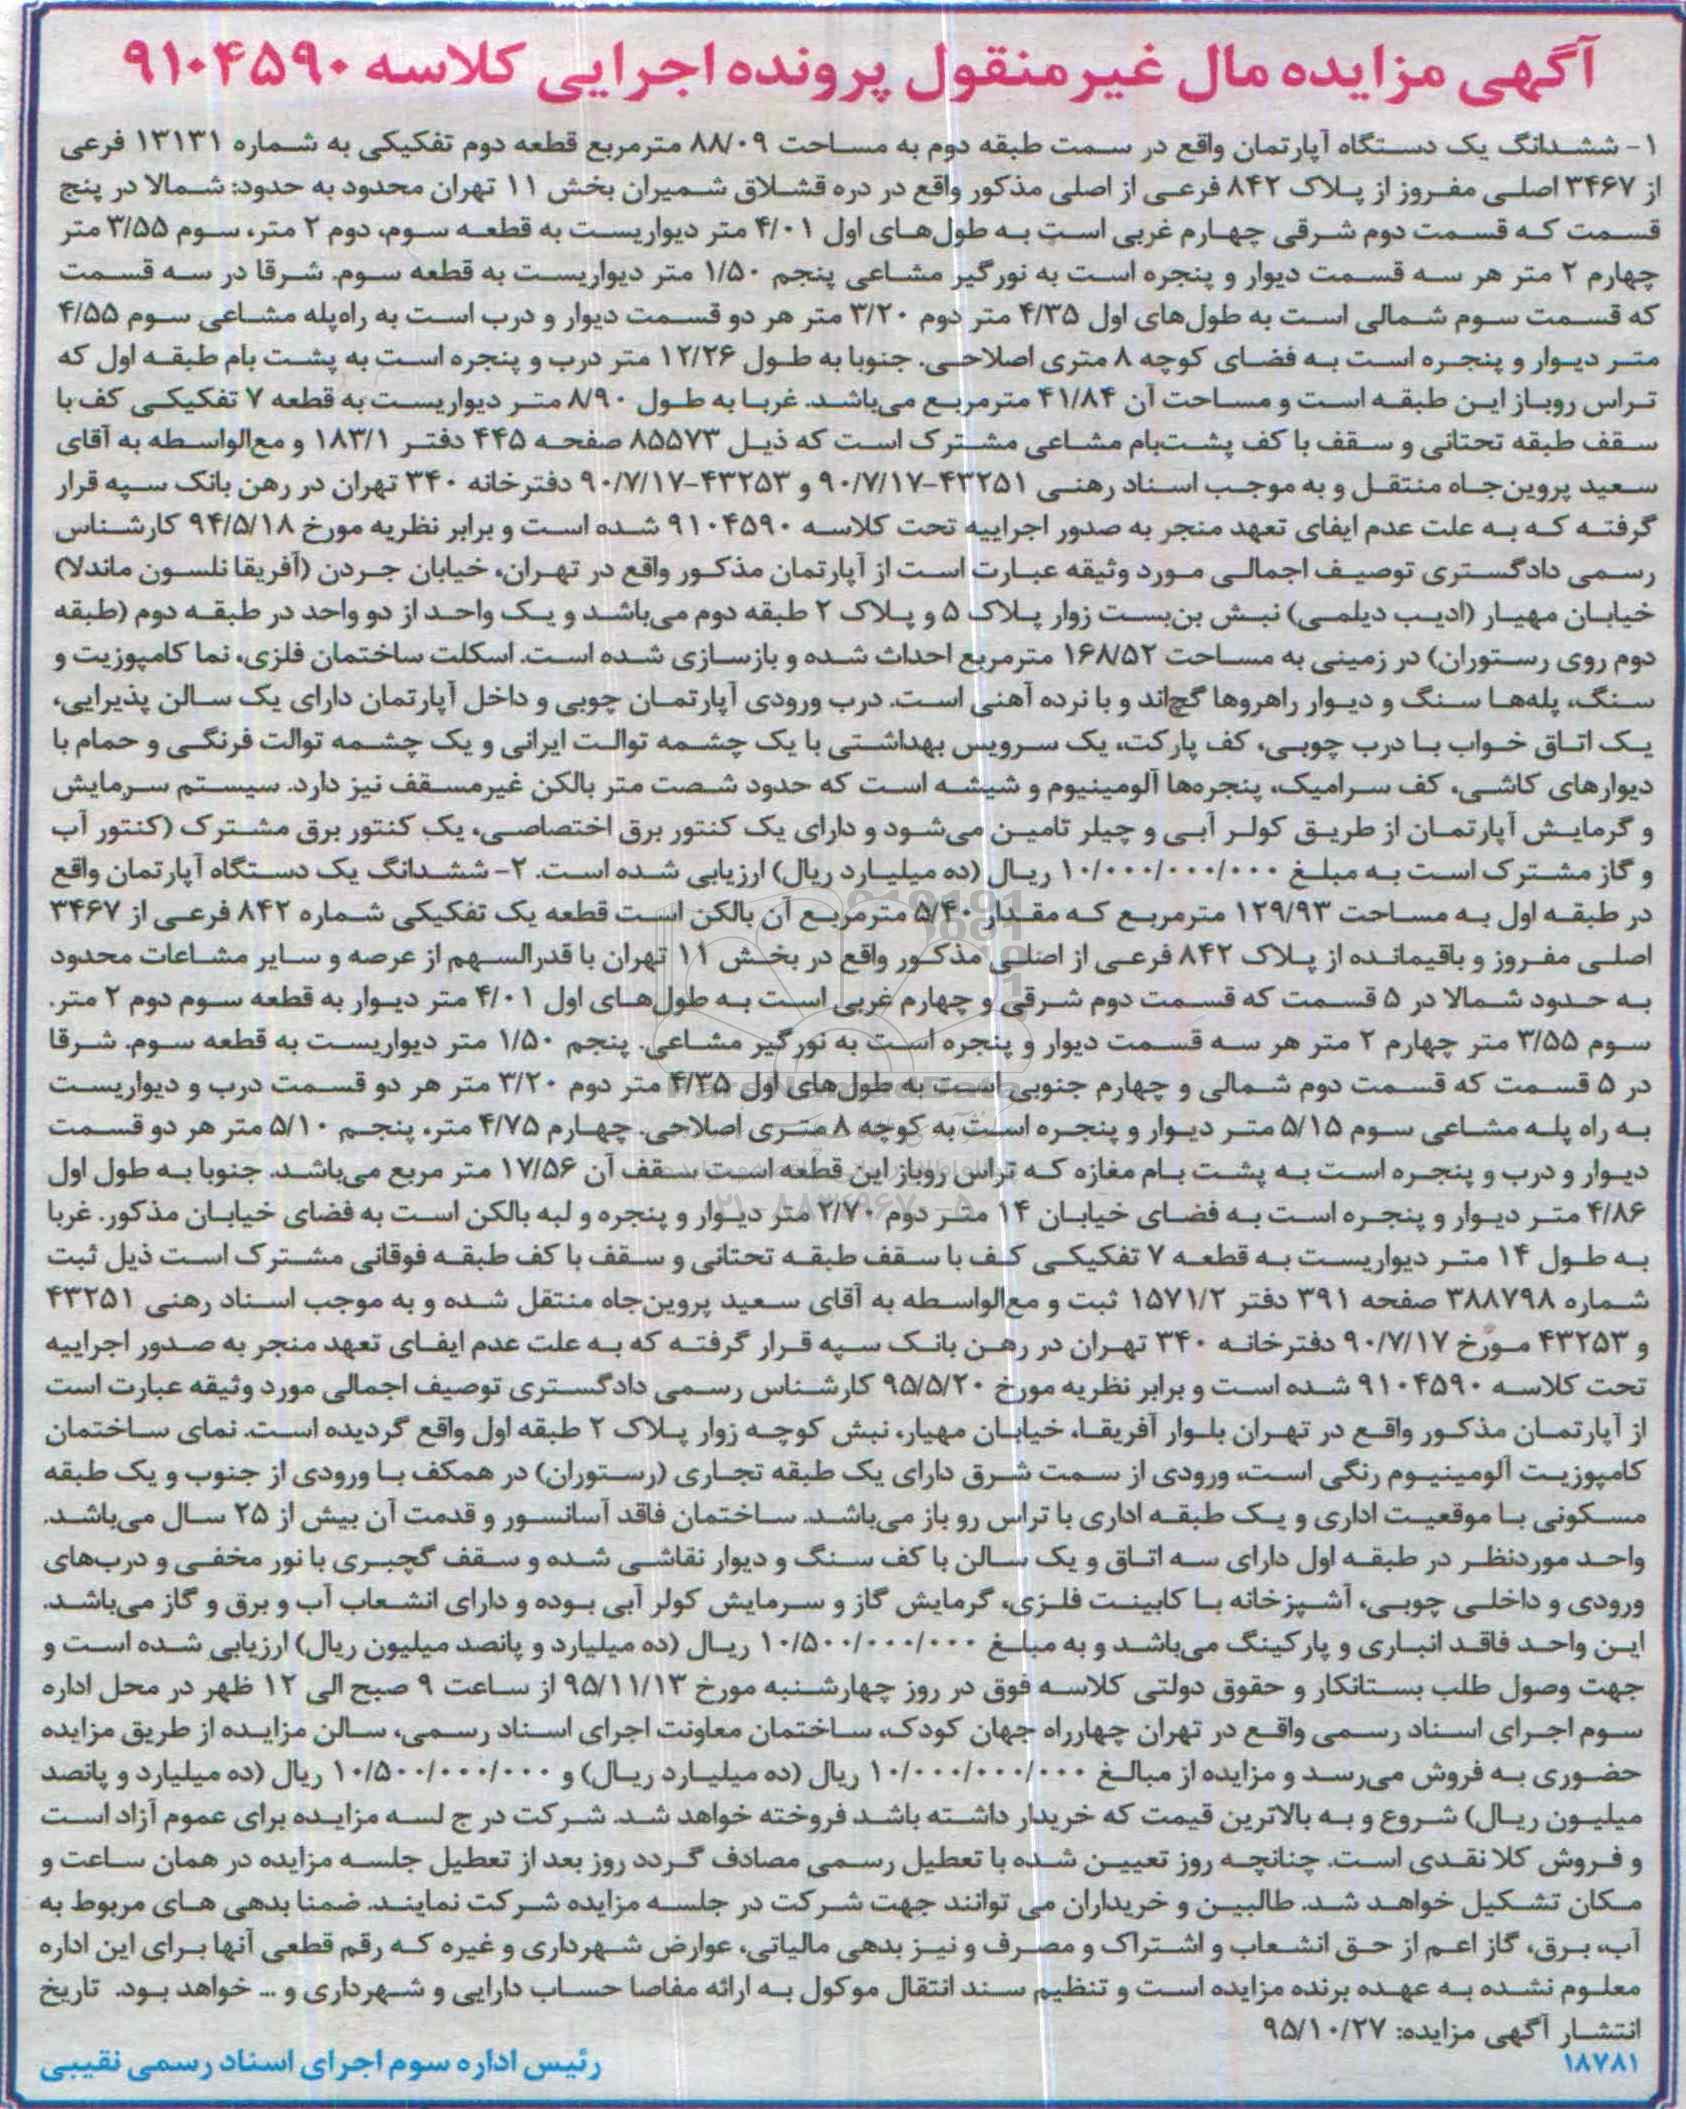 آگهی مزایده مال غیرمنقول پرونده اجرایی کلاسه ۹۱۰۴۵۹۰
۱- ششدانگ یک دستگاه آپارتمان واقع در سمت طبقه دوم به مساحت ۸۸/۰۹ مترمربع قطعه دوم تفکیکی به شماره ۱۳۱۳۱ فرعی
از ۳۴۶۷ اصلی مفروز از پلاک ۸۴۲ فرعی از اصلی مذکور واقع در دره قشلاق شمیران بخش ۱۱ تهران محدود به حدود: شمالا در پنج
قسمت که قسمت دوم شرقی چهارم غربی است به طول‌های اول ۴/۰۱ متر دیواریست به قطعه سوم، دوم ۲ متر، سوم ۳/۵۵ متر
چهارم ۲ متر هر سه قسمت دیوار و پنجره است به نورگیر مشاعی پنجم ۱/۵۰ متر دیواریست به قطعه سوم. شرقا در سه قسمت
که قسمت سوم شمالی است به طول‌های اول ۴/۳۵ متر دوم ۳/۲۰ متر هر دو قسمت دیوار و درب است به راه‌پله مشاعی سوم ۴/۵۵
متر دیوار و پنجره است به فضای کوچه ۸ متری اصلاحی. جنوبا به طول ۱۲/۲۶ متر درب و پنجره است به پشت بام طبقه اول که
تراس روباز این طبقه است و مساحت آن ۴۱/۸۴ مترمربع می‌باشد. غربا به طول ۸/۹۰ متر دیواریست به قطعه ۷ تفکیکی کف با
سقف طبقه تحتانی و سقف با کف پشت‌بام مشاعی مشترک است که ذیل ۸۵۵۷۳ صفحه ۴۴۵ دفتر ۱۸۳/۱ و مع‌الواسطه به آقای
سعید پروین‌جاه منتقل و به موجب اسناد رهنی ۴۳۲۵۱-۹۰/۷/۱۷ و ۴۳۲۵۳-۹۰/۷/۱۷ دفترخانه ۳۴۰ تهران در رهن بانک سپه قرار
گرفته که به علت عدم ایفای تعهد منجر به صدور اجراییه تحت کلاسه ۹۱۰۴۵۹۰ شده است و برابر نظریه مورخ ۹۴/۵/۱۸ کارشناس
رسمی دادگستری توصیف اجمالی مورد وثیقه عبارت است از آپارتمان مذکور واقع در تهران، خیابان جردن (آفریقا نلسون ماندلا)
خیابان مهیار (ادیب دیلمی) نبش بن‌بست زوار پلاک ۵ و پلاک ۲ طبقه دوم می‌باشد و یک واحد از دو واحد در طبقه دوم (طبقه
دوم روی رستوران) در زمینی به مساحت ۱۶۸/۵۲ مترمربع احداث شده و بازسازی شده است. اسکلت ساختمان فلزی، نما کامپوزیت و
سنگ، پله‌ها سنگ و دیوار راهروها گچ‌اند و با نرده آهنی است. درب ورودی آپارتمان چوبی و داخل آپارتمان دارای یک سالن پذیرایی،
یک اتاق خواب با درب چوبی، کف پارکت، یک سرویس بهداشتی با یک چشمه توالت ایرانی و یک چشمه توالت فرنگی و حمام با
دیوارهای کاشی، کف سرامیک، پنجره‌ها آلومینیوم و شیشه است که حدود شصت متر بالکن غیرمسقف نیز دارد. سیستم سرمایش
و گرمایش آپارتمان از طریق کولر آبی و چیلر تامین می‌شود و دارای یک کنتور برق اختصاصی، یک کنتور برق مشترک (کنتور آب
و گاز مشترک است به مبلغ ۱۰/۰۰۰/۰۰۰/۰۰۰ ریال (ده میلیارد ریال) ارزیابی شده است. ۲- ششدانگ یک دستگاه آپارتمان واقع
در طبقه اول به مساحت ۱۲۹/۹۳ مترمربع که مقدار ۵/۴۰ مترمربع آن بالکن است قطعه یک تفکیکی شماره ۸۴۲ فرعی از ۳۴۶۷
اصلی مفروز و باقیمانده از پلاک ۸۴۲ فرعی از اصلی مذکور واقع در بخش ۱۱ تهران با قدرالسهم از عرصه و سایر مشاعات محدود
به حدود شمالا در ۵ قسمت که قسمت دوم شرقی و چهارم غربی است به طول‌های اول ۴/۰۱ متر دیوار به قطعه سوم دوم ۲ متر.
سوم ۳/۵۵ متر چهارم ۲ متر هر سه قسمت دیوار و پنجره است به نورگیر مشاعی. پنجم ۱/۵۰ متر دیواریست به قطعه سوم. شرقا
در ۵ قسمت که قسمت دوم شمالی و چهارم جنوبی است به طول‌های اول ۴/۳۵ متر دوم ۳/۲۰ متر هر دو قسمت درب و دیواریست
به راه پله مشاعی سوم ۵/۱۵ متر دیوار و پنجره است به کوچه ۸ متری اصلاحی. چهارم ۴/۷۵ متر، پنجم ۵/۱۰ متر هر دو قسمت
دیوار و درب و پنجره است به پشت بام مغازه که تراس روباز این قطعه است سقف آن ۱۷/۵۶ متر مربع می‌باشد. جنوبا به طول اول
۴/۸۶ متر دیوار و پنجره است به فضای خیابان ۱۴ متر دوم ۲/۷۰ متر دیوار و پنجره و لبه بالکن است به فضای خیابان مذکور. غربا
به طول ۱۴ متر دیواریست به قطعه ۷ تفکیکی کف با سقف طبقه تحتانی و سقف با کف طبقه فوقانی مشترک است ذیل ثبت
شماره ۳۸۸۷۹۸ صفحه ۳۹۱ دفتر ۱۵۷۱/۲ ثبت و مع‌الواسطه به آقای سعید پروین‌جاه منتقل شده و به موجب اسناد رهنی ۴۳۲۵۱
و ۴۳۲۵۳ مورخ ۹۰/۷/۱۷ دفترخانه ۳۴۰ تهران در رهن بانک سپه قرار گرفته که به علت عدم ایفای تعهد منجر به صدور اجراییه
تحت کلاسه ۹۱۰۴۵۹۰ شده است و برابر نظریه مورخ ۹۵/۵/۲۰ کارشناس رسمی دادگستری توصیف اجمالی مورد وثیقه عبارت است
از آپارتمان مذکور واقع در تهران بلوار آفریقا، خیابان مهیار، نبش کوچه زوار پلاک ۲ طبقه اول واقع گردیده است. نمای ساختمان
کامپوزیت آلومینیوم رنگی است، ورودی از سمت شرق دارای یک طبقه تجاری (رستوران) در همکف با ورودی از جنوب و یک طبقه
مسکونی با موقعیت اداری و یک طبقه اداری با تراس رو باز می‌باشد. ساختمان فاقد آسانسور و قدمت آن بیش از ۲۵ سال می‌باشد.
واحد موردنظر در طبقه اول دارای سه اتاق و یک سالن با کف سنگ و دیوار نقاشی شده و سقف گچبری با نور مخفی و درب‌های
ورودی و داخلی چوبی، آشپزخانه با کابینت فلزی، گرمایش گاز و سرمایش کولر آبی بوده و دارای انشعاب آب و برق و گاز می‌باشد.
این واحد فاقد انباری و پارکینگ می‌باشد و به مبلغ ۱۰/۵۰۰/۰۰۰/۰۰۰ ریال (ده میلیارد و پانصد میلیون ریال) ارزیابی شده است و
جهت وصول طلب بستانکار و حقوق دولتی کلاسه فوق در روز چهارشنبه مورخ ۹۵/۱۱/۱۳ از ساعت ۹ صبح الی ۱۲ ظهر در محل اداره
سوم اجرای اسناد رسمی واقع در تهران چهارراه جهان کودک، ساختمان معاونت اجرای اسناد رسمی، سالن مزایده از طریق مزایده
حضوری به فروش می‌رسد و مزایده از مبالغ ۱۰/۰۰۰/۰۰۰/۰۰۰ ریال (ده میلیارد ریال) و ۱۰/۵۰۰/۰۰۰/۰۰۰ ریال (ده میلیارد و پانصد
میلیون ریال) شروع و به بالاترین قیمت که خریدار داشته باشد فروخته خواهد شد. شرکت در ج لسه مزایده برای عموم آزاد است
و فروش کلا نقدی است. چنانچه روز تعیین شده با تعطیل رسمی مصادف گردد روز بعد از تعطیل جلسه مزایده در همان ساعت و
مکان تشکیل خواهد شد. طالبین و خریداران می توانند جهت شرکت در جلسه مزایده شرکت نمایند. ضمنا بدهی های مربوط به
آب، برق، گاز اعم از حق انشعاب و اشتراک و مصرف و نیز بدهی مالیاتی، عوارض شهرداری و غیره که رقم قطعی آنها برای این اداره
معلوم نشده به عهده برنده مزایده است و تنظیم سند انتقال موکول به ارائه مفاصا حساب دارایی و شهرداری و ... خواهد بود. تاریخ
انتشار آگهی مزایده: ۹۵/۱۰/۲۷
۱۸۷۸۱
رئیس اداره سوم اجرای اسناد رسمی نقیبی